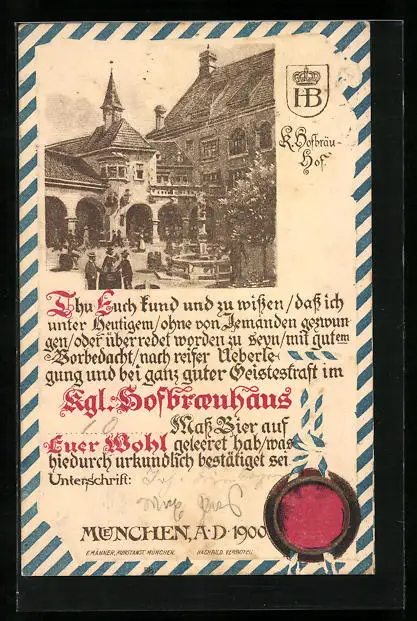 HB
K. Hofbräu-
Hof.
Thu Euch kund und zu wißen/daß ich
unter Heutigem/ohne von Jemanden gezwun
gen/oder überredet worden zu seyn/mit gutem
Vorbedacht/nach reifer Ueberle-
gung und bei ganz guter Geisteskraft im
Kgl. Hofbrænhaus
10 Maß Bier auf
Euer Wohl geleeret hab/was
hiedurch urkundlich bestätiget sei
Unterschrift:
MUENCHEN, A·D·1900
E. MÄNNER, KUNSTANST. MÜNCHEN. NACHBILD. VERBOTEN.